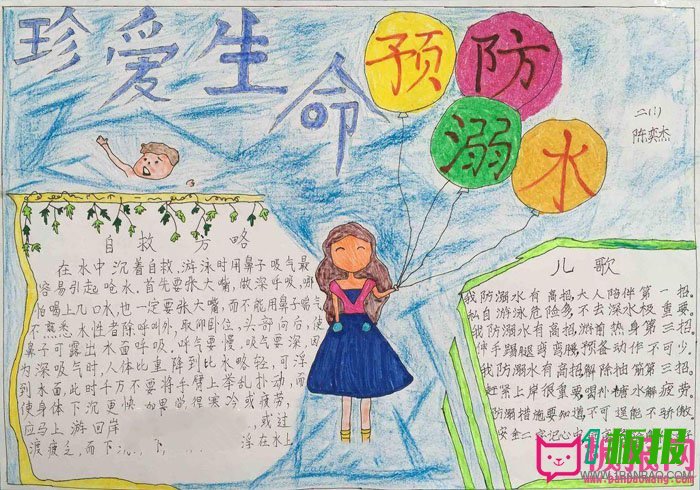 珍爱生命
预防
溺水
二(1)
陈奕杰
自救方略
在水中沉着自救、游泳时用鼻子吸气最
容易引起呛水,首先要张大嘴,做深呼吸,哪
怕喝上几口水,也一定要张大嘴,而不能用鼻子吸气
不熟悉水性者除呼叫外,取仰卧位,头部向后,使
鼻子可露出水面呼吸,呼气要慢,吸气要深,因
为深吸气时,人体比重降到比水略轻,可浮
到水面,此时千万不要将手臂上举乱扑动,而
使身体下沉更快,如果觉得寒冷或疲劳,
应马上游回岸
,或过
渡疲乏,而下沉
浮在水上
儿歌
我防溺水有高招,大人陪伴第一招。
私自游泳危险多,不去深水极重要。
我防溺水有高招,游前热身第二招。
伸手踢腿弯弯腰,预备动作不可少。
我防溺水有高招,解除抽筋第三招。
赶紧上岸很重要,喝补糖水解疲劳。
防溺措施要知道,不可逞能不骄傲。
安全二字记心中
板报
WWW.1BANBAO.COM
www.banbaowang.com